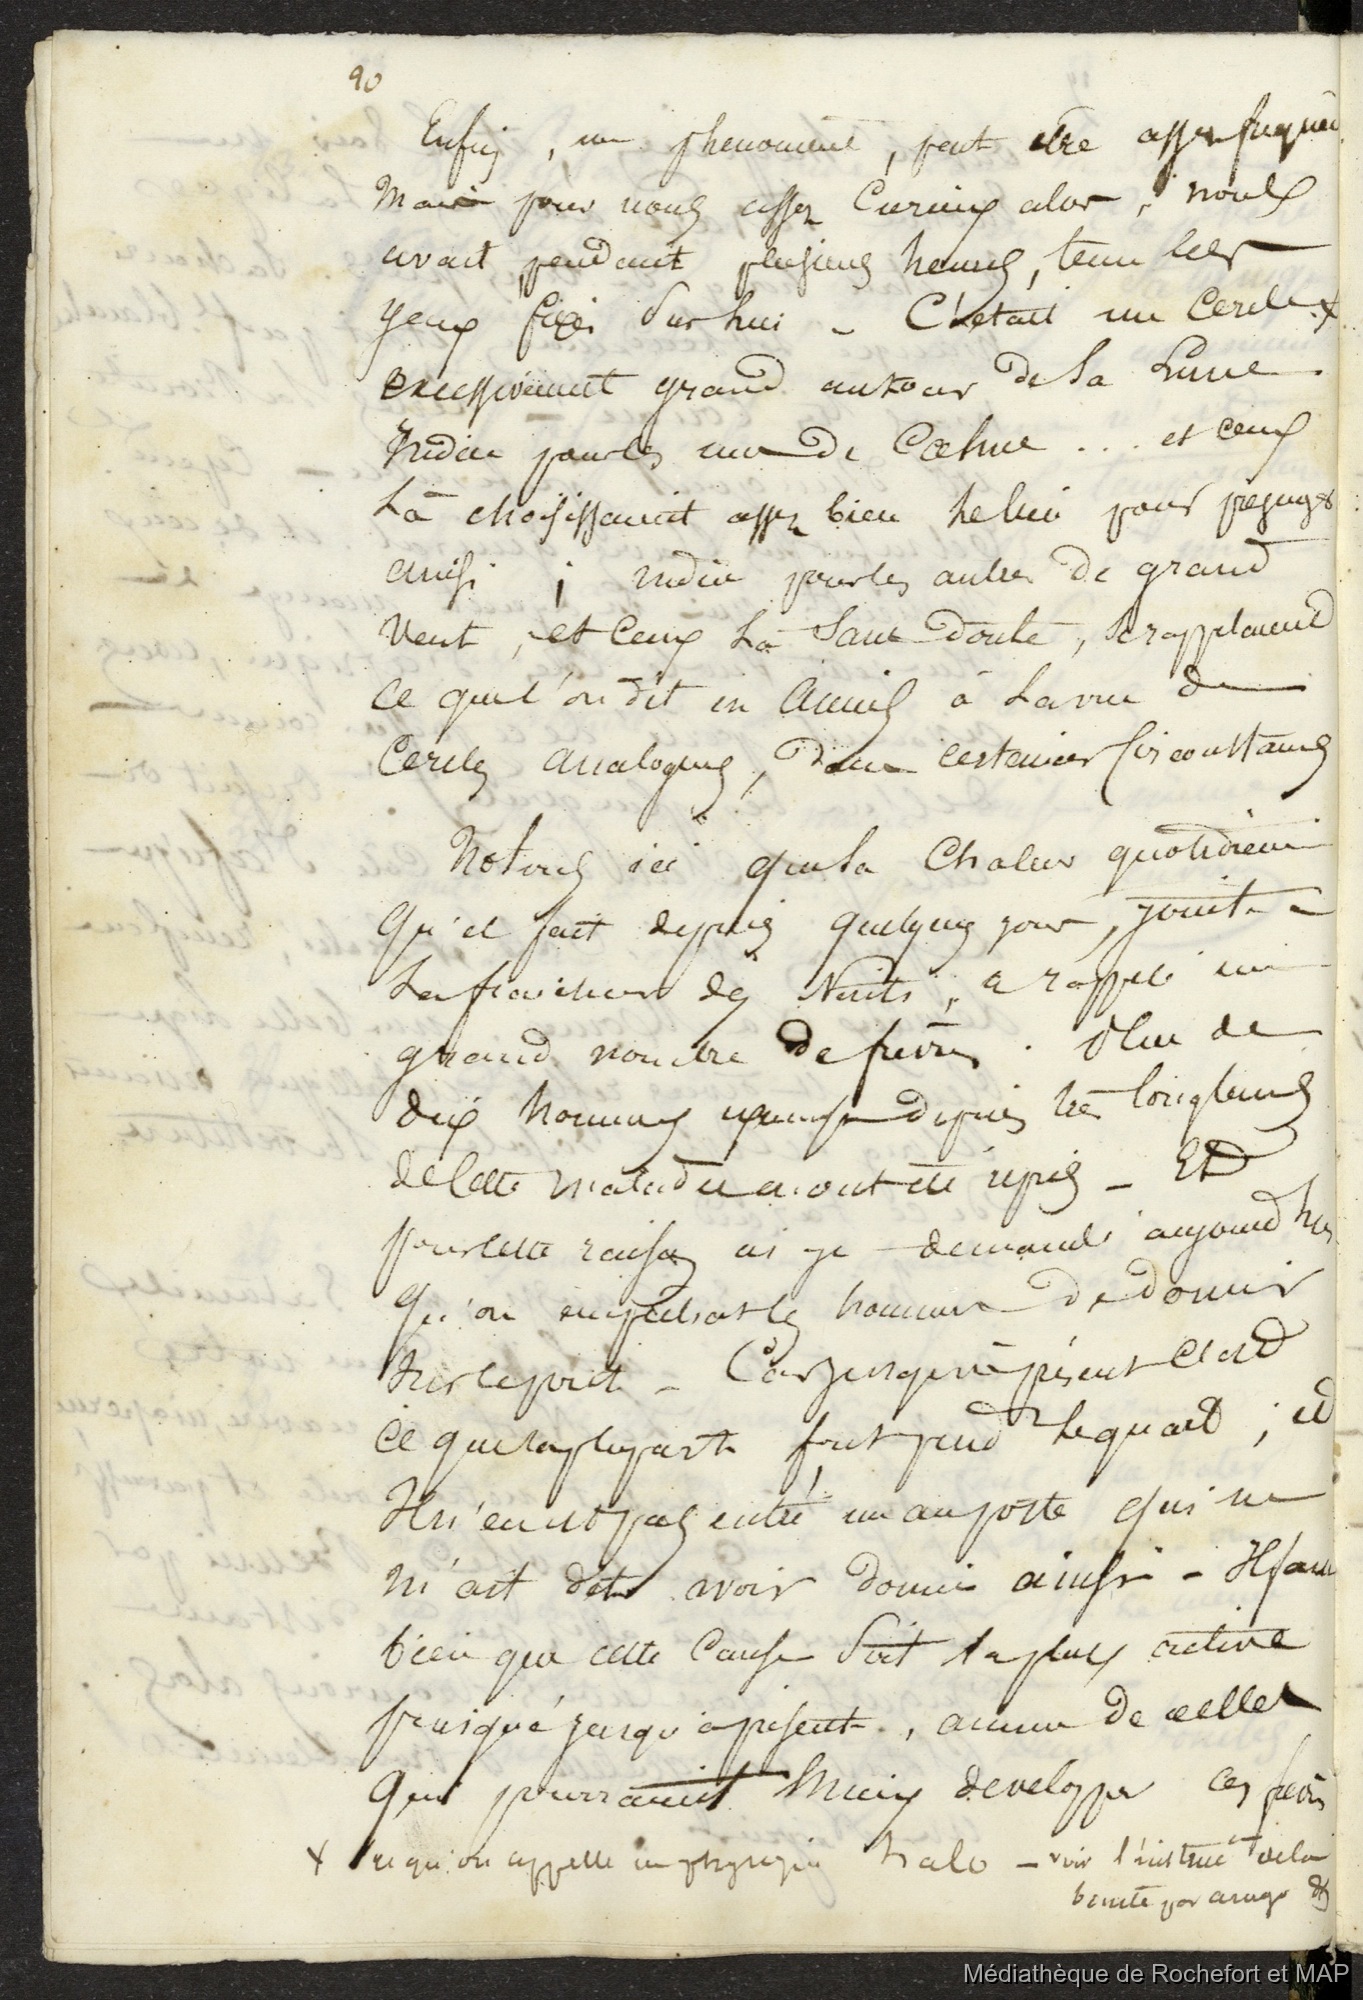 90
Enfin, un phenomène, peut être assez frequent
Mais pour nous assez Curieux alors, nous
avait pendant plusieurs heures, tenu les
yeux fixés sur lui - C'était un Cercle x
excessivement grand autour de la Lune
Indice pour les uns de Calme ... et ceux
Là choisissaient assez bien le lieu pour préjuger
ainsi ; indice pour les autres de grand
Vent, et Ceux Là Sans Doute, se rappelaient
Ce que l'on dit en à La vue de
Cercles analogues, dans certaines Circonstances
Notons ici que la Chaleur quotidienne
Qu'il fait depuis quelques jours, jointe à
La fraicheur des Nuits, a rappelé un
grand nombre de fièvres. Plus de
dix hommes depuis très longtems
de Cette maladie en ont été repris - Et
pour Cette raison ai je demandé aujourd'hui
Qu'on empechat les hommes De Dormir
sur le pont - Car jusqu'à présent C'est
Ce que la plupart font pend.t le quart ; et
Il n'en est pas entré un au poste qui ne
m'ait dit avoir dormi ainsi - Il faut
bien que cette Cause Soit la plus active
puisque jusqu'à présent, aucune de celles
Qui pourraient Mieux developper ces fièvres
x ce qu'on appelle en physique halo - voir l'instruc.on de la
bonite par arago
Médiathèque de Rochefort et MAP